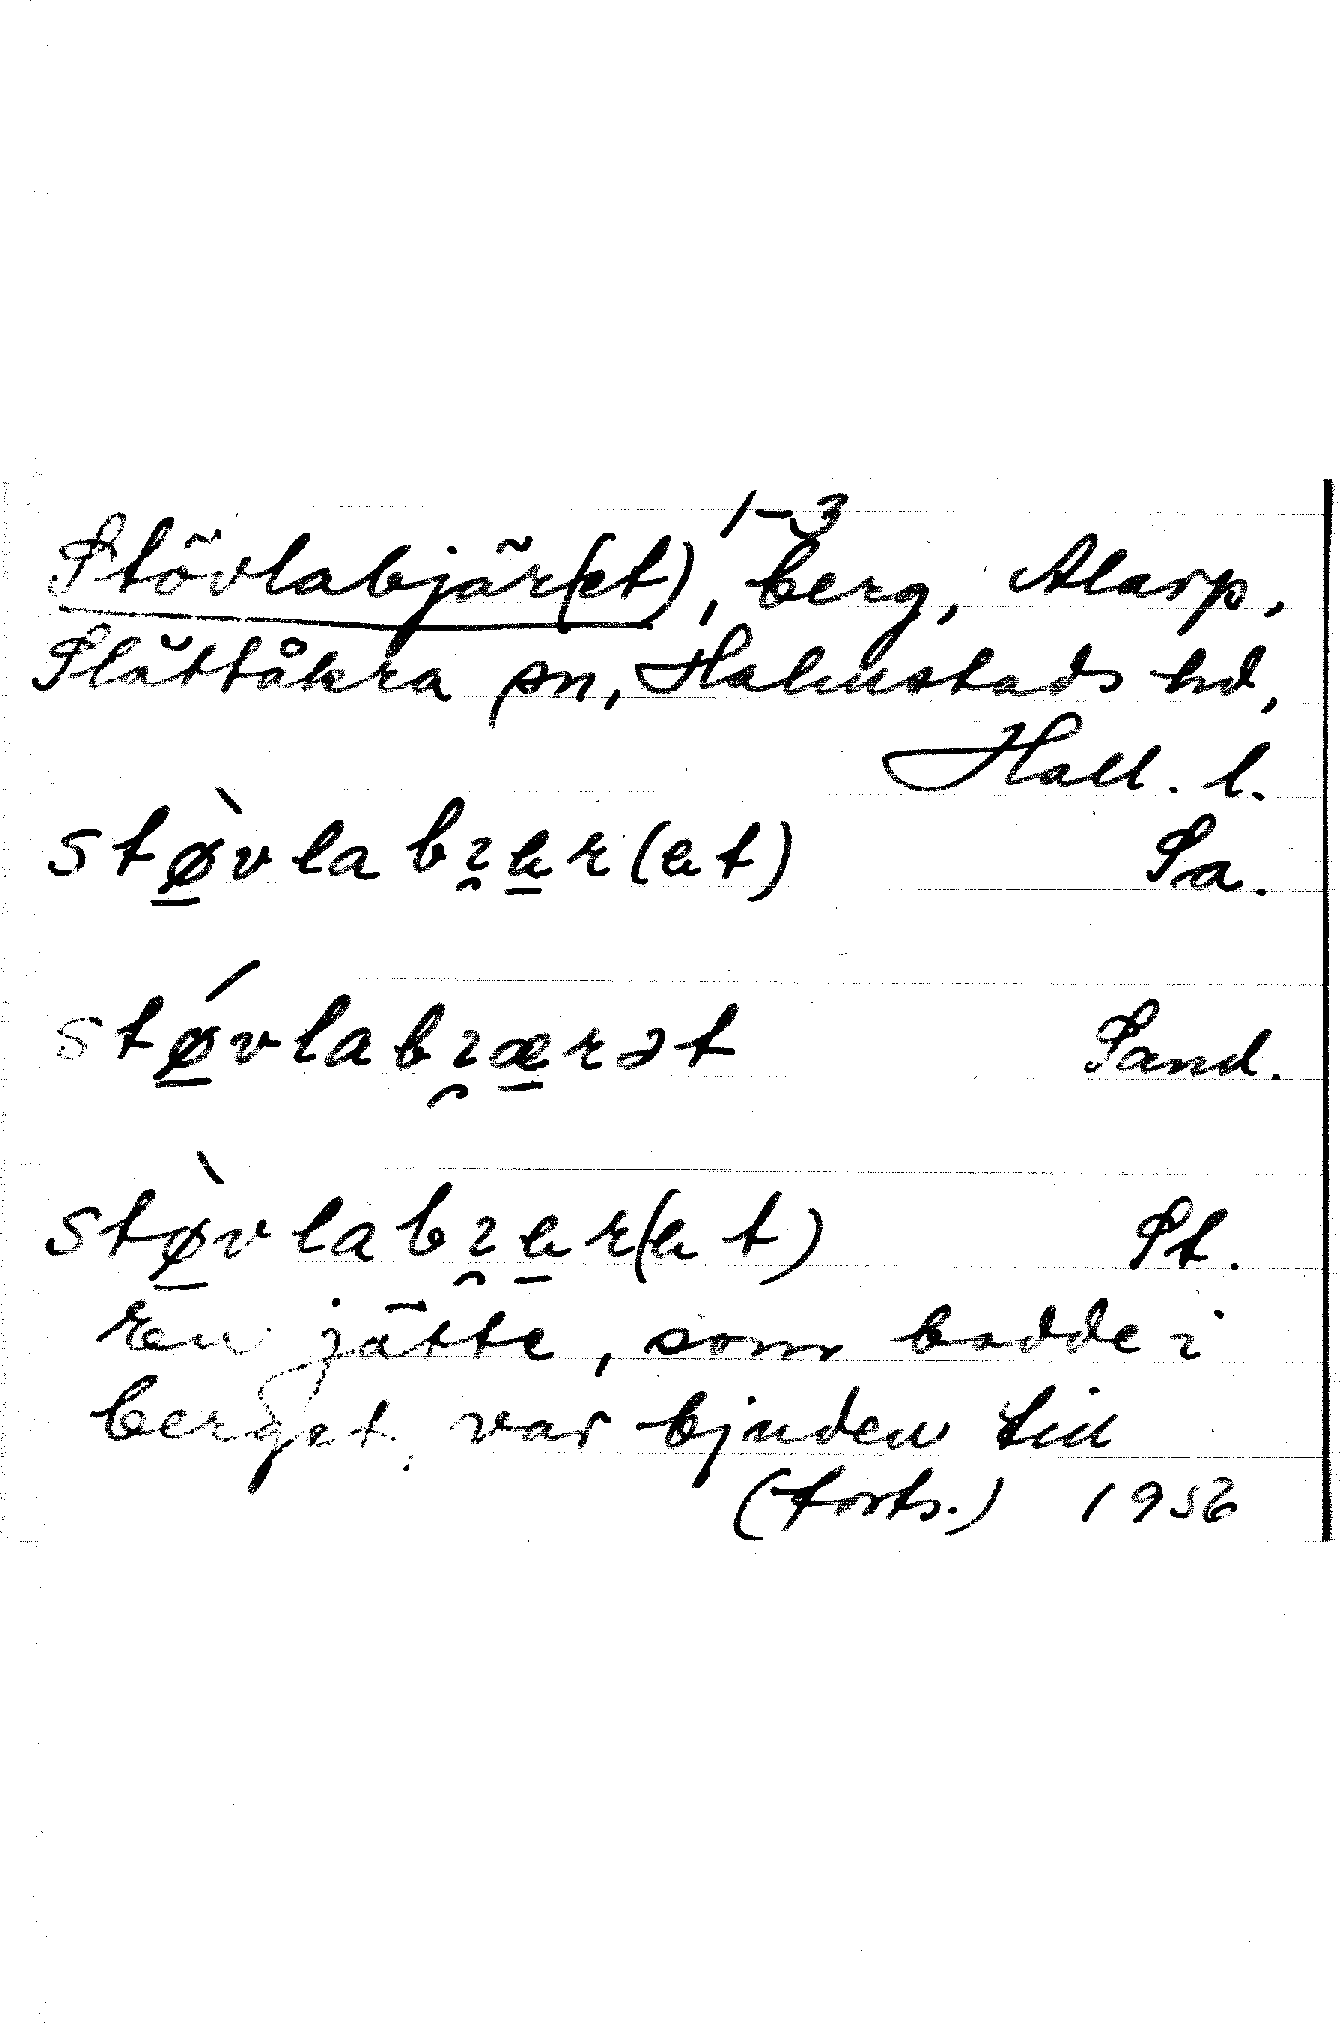 1-3
Stövlabjär(et), berg, Alarp,
Slättåkra sn, Halmstads hd,
Hall. l.
stø̀vlabɿ̯ær(et) Sa.
stǿvlabɿ̯ærət Sand.
stø̀vlabɿ̯er(et) St.
En jätte, som bodde i
berget, var bjuden till
(forts.) 1956